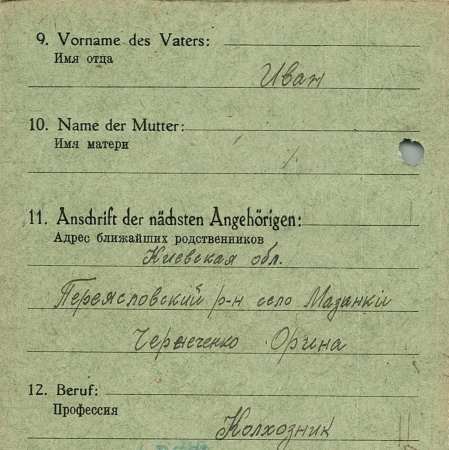 9. Vorname des Vaters:
Имя отца
Иван
10. Name der Mutter:
Имя матери
11. Anschrift der nächsten Angehörigen:
Адрес ближайших родственников
Киевская обл.
Переясловский р-н село Мазанки
Орина
12. Beruf:
Профессия
Колхозник